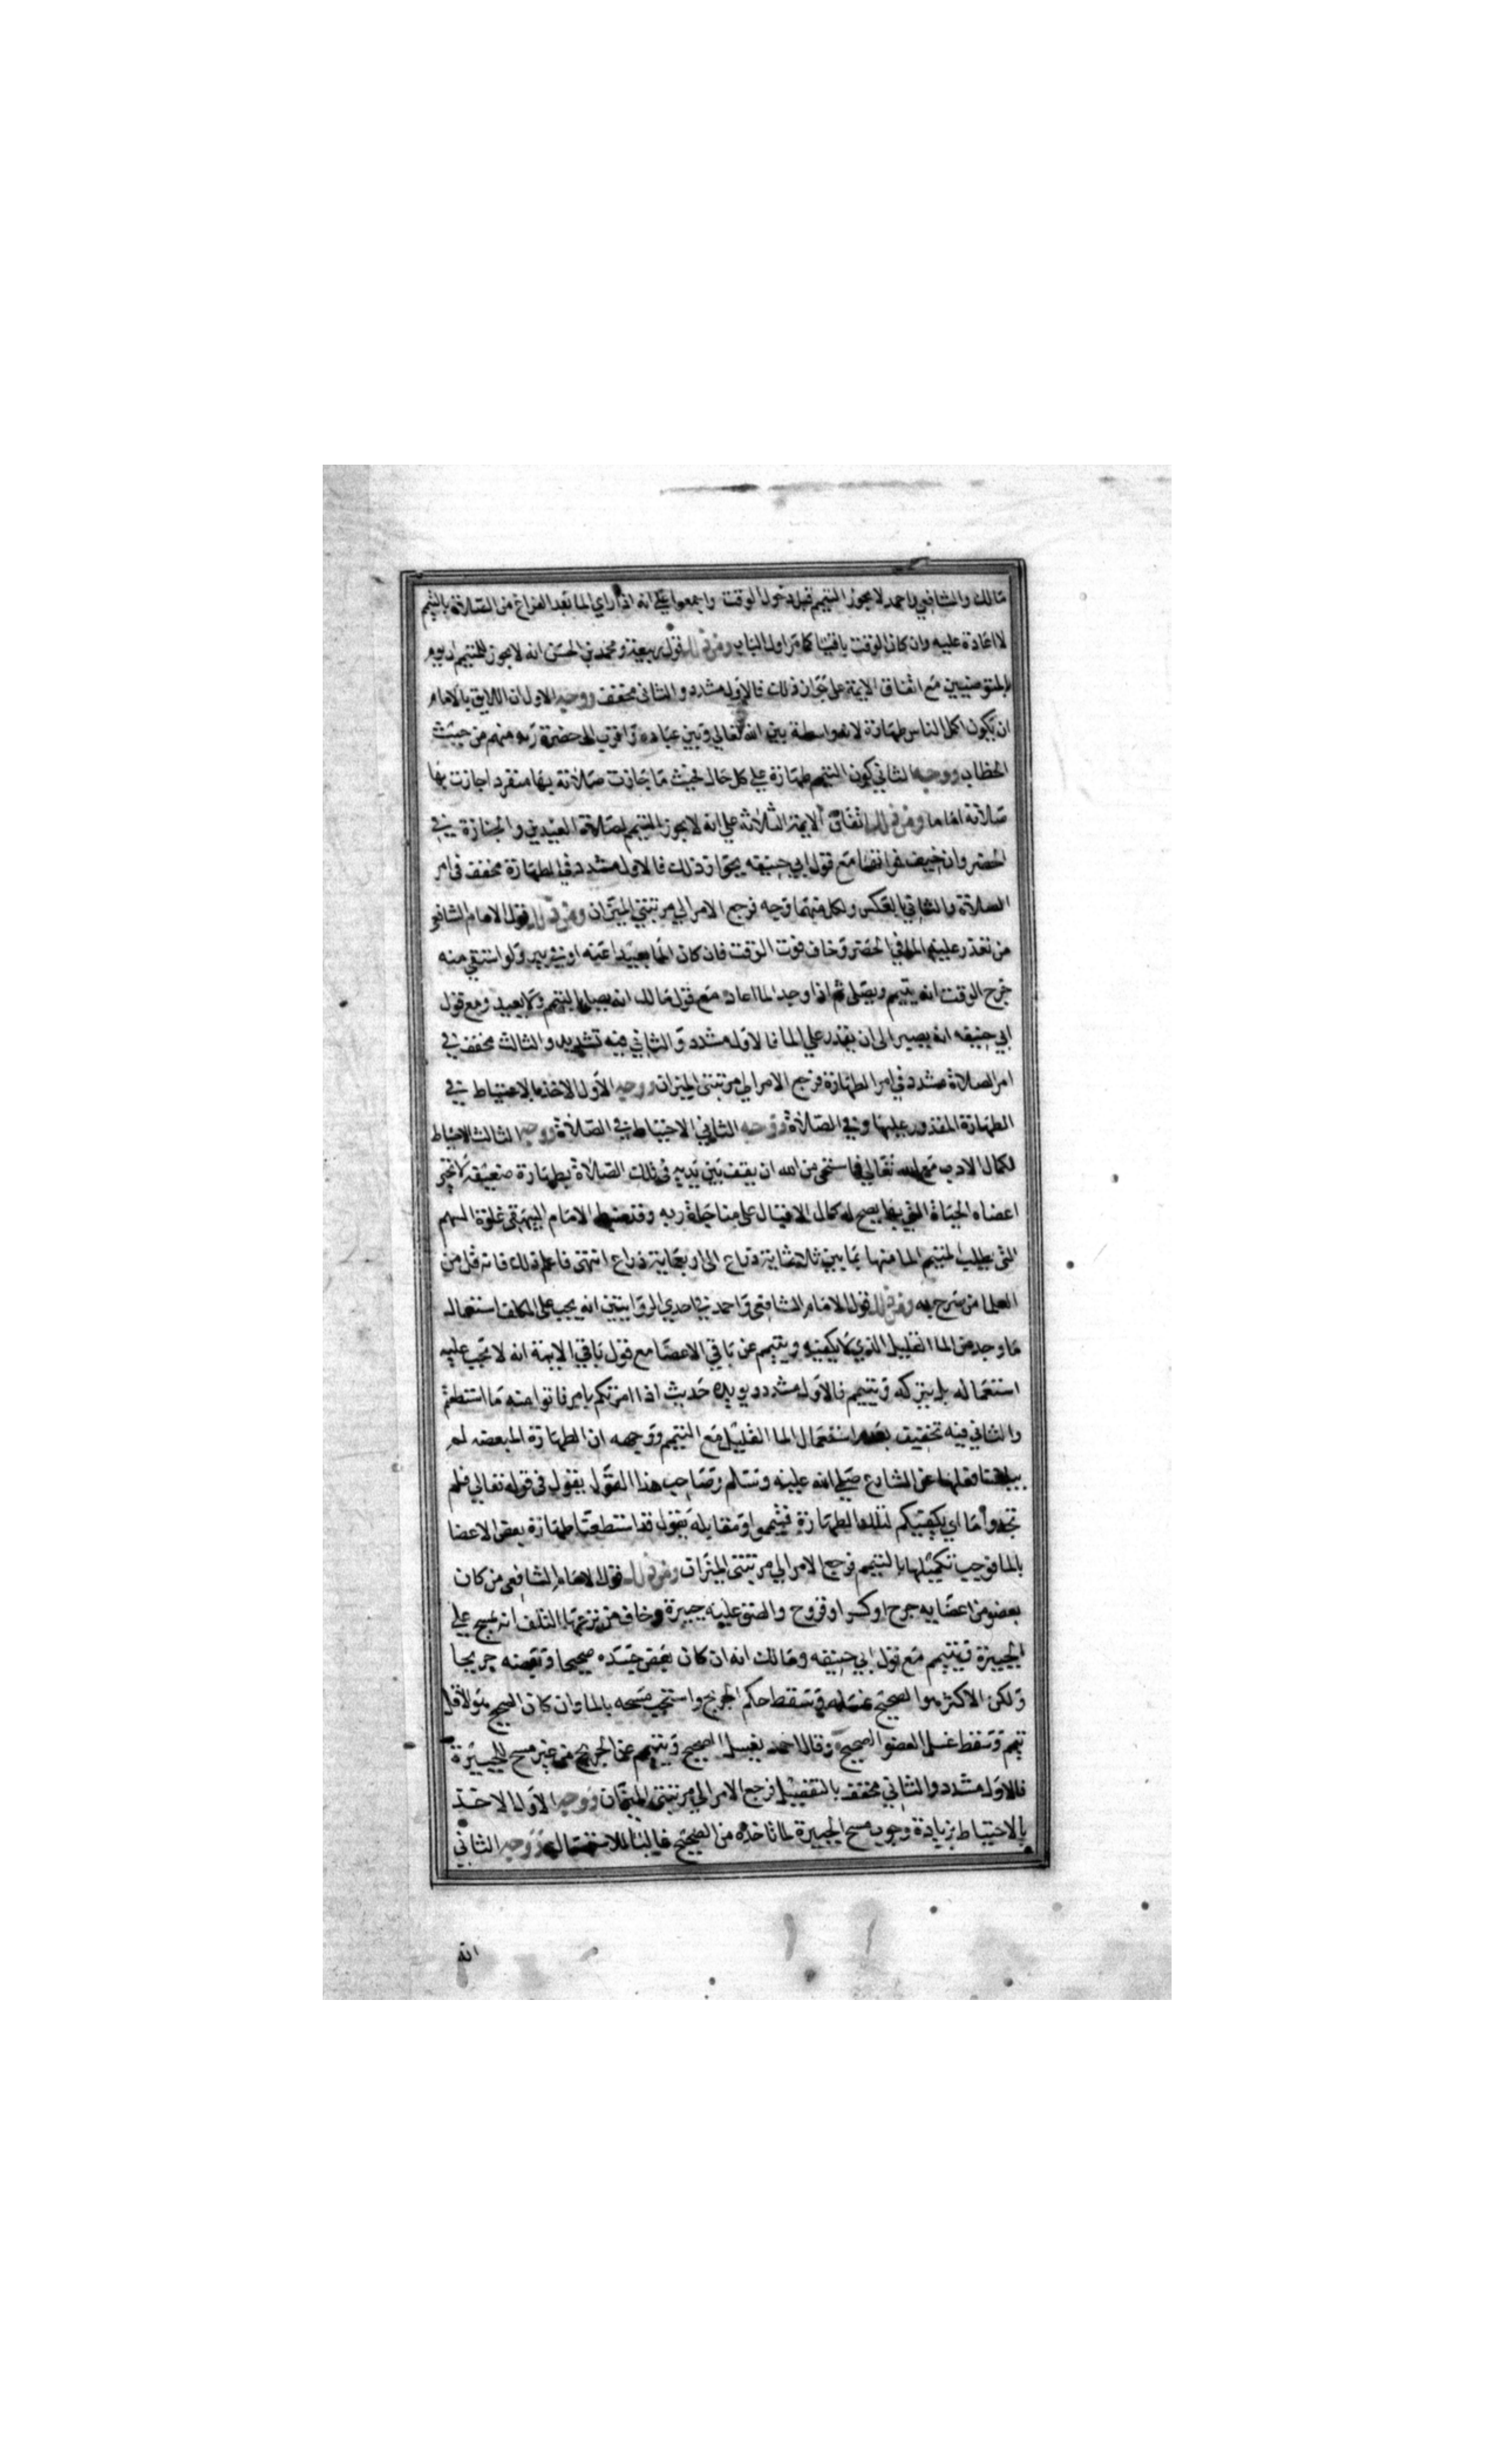 مالك والشافعي واحمد لا يجوز التيمم قبل دخول الوقت واجمعوا علي انه اذا راي الما بعد الفراغ من الصلاة بالتيمم
لا اعادة عليه وان كان الوقت باقيا كما مر اول الباب ومن ذلك قول ربيعة ومحمد بن الحسن انه لا يجوز للمتيمم ان يوم
بالمتوضئين مع اتفاق الايمة على جواز ذلك فالاول مشدد والثاني مخفف ووجه الاول ان اللايق بالامام
ان يكون اكمل الناس طهارة لانه واسطة بين الله تعالي وبين عباده واقرب الى حضرة ربه منهم من حيث
الخطاب ووجه الثاني كون التيمم طهارة علي كل حال فحيث ما جازت صلاته بها منفردا جازت بها
صلاته اماما ومن ذلك اتفاق الايمة الثلاثة علي انه لا يجوز التيمم لصلاة العيدين والجنازة في
الحضر وان خيف فواتها مع قول ابي حنيفه بجواز ذلك فالاول مشدد في الطهارة مخفف في امر
الصلاة والثاني بالعكس ولكل منهما وجه فرجع الامر الي مرتبتي الميزان ومن ذلك قول الامام الشافعي
من تعذر عليه الما في الحضر وخاف فوت الوقت فان كان الما بعيدا عنه او في بير ولو استقي منه
خرج الوقت انه يتيمم ويصلى ثم اذا وجد الما اعاد مع قول مالك انه يصلى بالتيمم ولا يعيد ومع قول
ابي حنيفه انه يصبر الى ان يقدر علي الما فالاول مشدد والثاني فيه تشديد والثالث مخفف في
امر الصلاة مشدد في امر الطهارة فرجع الامر الي مرتبتي الميزان ووجه الاول الاخذ بالاحتياط في
الطهارة المقدور عليها وفي الصلاة ووجه الثاني الاحتياط في الصلاة ووجه الثالث الاحتياط
لكمال الادب مع الله تعالي فاستحى من الله ان يقف بين يديه في تلك الصلاة بطهارة ضعيفه لا تحيى
اعضاه الحياة التي بها يصح له كمال الاقبال على مناجاة ربه وقد ضبط الامام البيهقي غلوة السهم
التي يطلب المتيمم الما منها بما بين ثلاثماية ذراع الى اربعماية ذراع انتهى فاعلم ذلك فانه قل من
العلما من صرح به ومن ذلك قول الامام الشافعي واحمد في احدي الروايتين انه يجب على المكلف استعمال
ما وجد من الما القليل الذي لا يكفيه ويتيمم عن باقي الاعضا مع قول باقي الايمة انه لا تجب عليه
استعماله بل يتركه ويتيمم فالاول مشدد ويويده حديث اذا امرتكم بامر فاتوا منه ما استطعتم
والثاني فيه تخفيف بعدم استعمال الما القليل مع التيمم ووجهه ان الطهارة المبعضه لم
يبلغنا فعلها عن الشارع صلي الله عليه وسلم وصاحب هذا القول يقول في قوله تعالي فلم
تجدوا ما اي يكفيكم لتلك الطهارة فتيمموا ومقابله يقول قد استطعنا طهارة بعض الاعضا
بالما فوجب تكميلها بالتيمم فرجع الامر الي مرتبتي الميزان ومن ذلك قول الامام الشافعي من كان
بعضو من اعضايه جرح او كسر او قروح والصق عليه جبيرة وخاف من نزعها التلف انه يمسح علي
الجبيرة ويتيمم مع قول ابي حنيفه ومالك انه ان كان بعض جسده صحيحا وبعضه جريحا
ولكن الاكثر هو الصحيح غسله وسقط حكم الجرح واستحب مسحه بالما وان كان الصحيح هو الاقل
تيمم وسقط غسل العضو الصحيح وقال احمد يغسل الصحيح ويتيمم عن الجريح من غير مسح للجبيرة
فالاول مشدد والثاني مخفف بالتفصيل فرجع الامر الي مرتبتي الميزان ووجه الاول الاخذ
بالاحتياط بزيادة وجوب مسح الجبيرة لما تاخذه من الصحيح غالبا للاستمساك ووجه الثاني
انه